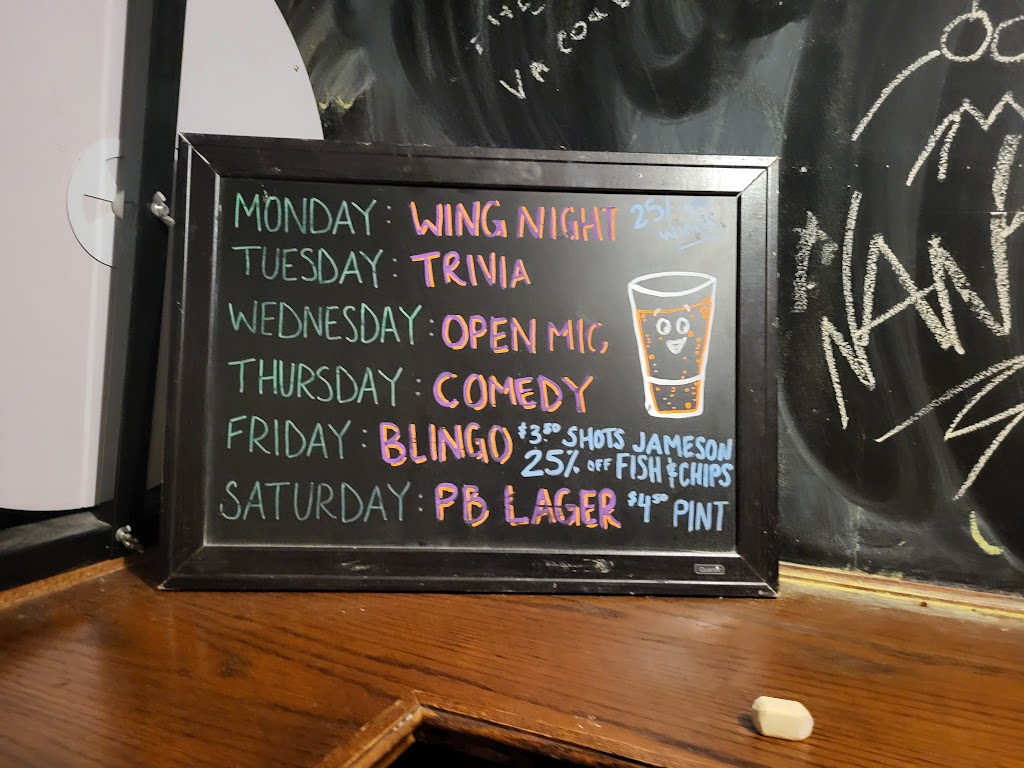 MONDAY: WING NIGHT 25%
TUESDAY: TRIVIA
WEDNESDAY: OPEN MIC
THURSDAY: COMEDY
FRIDAY: BLINGO $3.50 SHOTS JAMESON
25% OFF FISH & CHIPS
SATURDAY: PB LAGER $4.50 PINT